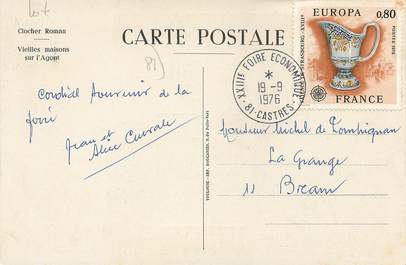 lot
Clocher Roman
Vieilles maisons
sur l'Agout
CARTE POSTALE
EUROPA 0,80
STRASBOURG - XVIIIe
POSTES 1976
FRANCE
81)
XXIIIe FOIRE ECONOMIQUE
*
19-9
1976
81-CASTRES
Cordial Souvenir de la
foire
Jean et
Alice
Monsieur Michel de
La Grange
11 Bram